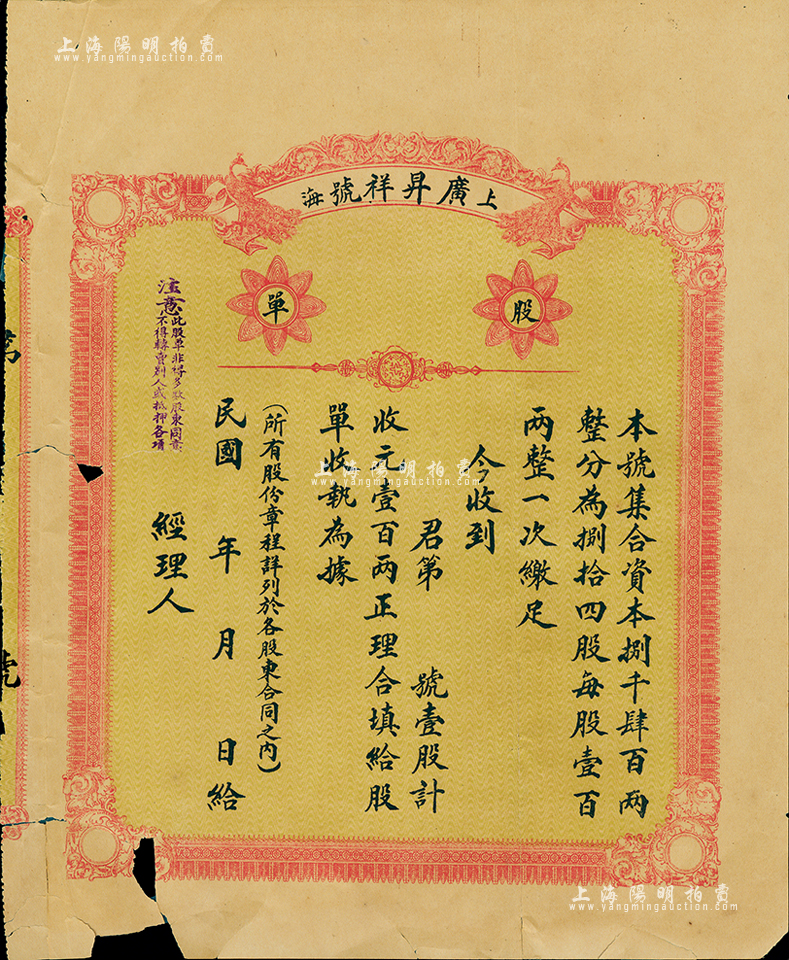 上海陽明拍賣
www.yangmingauction.com
上廣昇祥號海
股單
本號集合資本捌千肆百兩
整分為捌拾四股每股壹百
兩整一次繳足
今收到
君第 號壹股計
收元壹百兩正理合填給股
單收執為據
(所有股份章程詳列於各股東合同之內)
民國 年 月 日給
經理人
注意此股單非得多數股東同意
不得轉賣別人或抵押各項
號
上海陽明拍賣
www.yangmingauction.com
上海陽明拍賣
www.yangmingauction.com